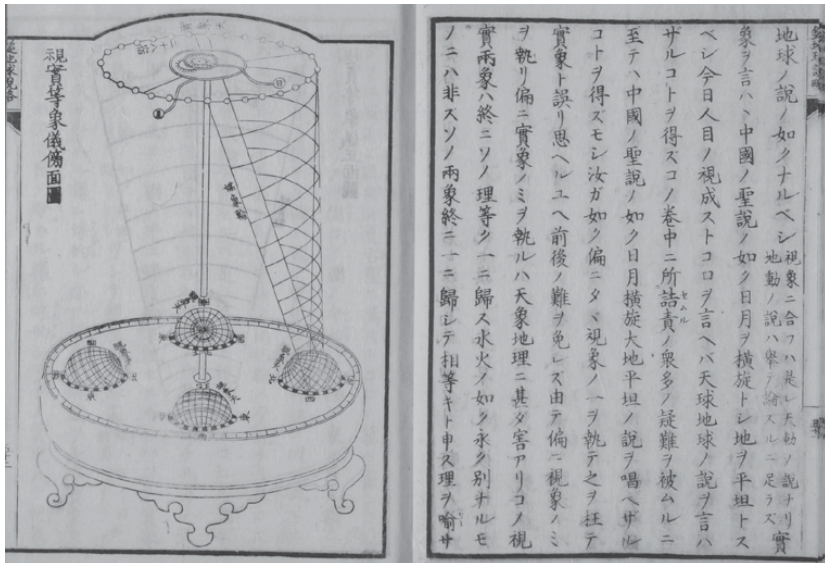 地球ノ說ノ如クナルベシ
視象ニ合フハ是レ天動ノ說ナリ
地動ノ說ハ擧テ論スルニ足ラズ
實
象ヲ言ハヽ中國ノ聖說ノ如ク日月ヲ横旋トシ地ヲ平坦トス
ベシ今日人目ノ視成ストコロヲ言ヘバ天球地球ノ說ヲ言ハ
ザルコトヲ得ズコノ卷中ニ所詰責ノ衆多ノ疑難ヲ被ムルニ
セムル
至テハ中國ノ聖說ノ如ク日月横旋大地平坦ノ說ヲ唱ヘザル
コトヲ得ズモシ汝ガ如ク偏ニタヽ視象ノ一ヲ執テ之ヲ枉テ
實象ト誤リ思ヘルユヘ前後ノ難ヲ免レズ由テ偏ニ視象ノミ
ヲ執リ偏ニ實象ノミヲ執ルハ天象地理ニ甚タ害アリコノ視
實兩象ハ終ニソノ理等ク一ニ歸ス水火ノ如ク永ク別ナルモ
ノニハ非ズソノ兩象終ニ一ニ歸シテ相等キト申ス理ヲ喻サ
視實等象儀傍面圖
日